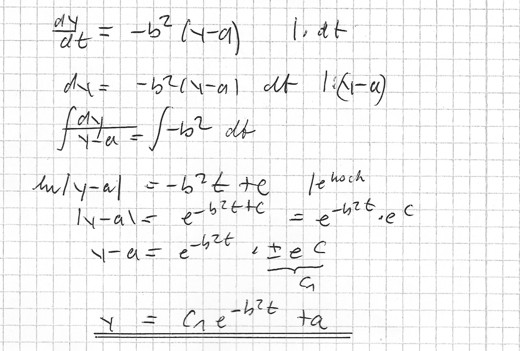 dy/dt = -b² (y-a) | · dt
dy = -b² (y-a) dt | :(y-a)
∫ dy/(y-a) = ∫ -b² dt
ln|y-a| = -b²t + c | e hoch
|y-a| = e^(-b²t+c) = e^(-b²t) · e^c
y-a = e^(-b²t) · ± e^c
C₁
y = C₁ e^(-b²t) + a